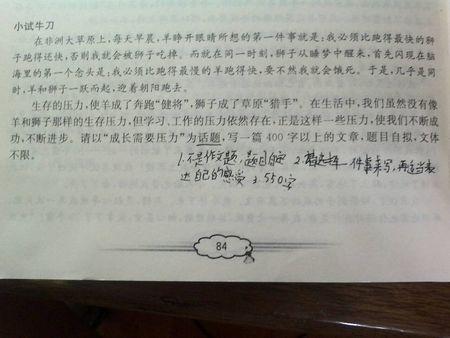 小试牛刀
在非洲大草原上,每天早晨,羊睁开眼睛所想的第一件事就是:我必须比跑得最快的狮
子跑得还快,否则我就会被狮子吃掉。而就在同一时刻,狮子从睡梦中醒来,首先闪现在脑
海里的第一个念头是:我必须比跑得最慢的羊跑得快,要不然我就会饿死。于是,几乎是同
时,羊和狮子一跃而起,迎着朝阳跑去。
生存的压力,使羊成了奔跑“健将”,狮子成了草原“猎手”。在生活中,我们虽然没有像
羊和狮子那样的生存压力,但学习、工作的压力依然存在,正是这样一些压力,使我们不断成
功,不断进步。请以“成长需要压力”为话题,写一篇400字以上的文章,题目自拟,文体
不限。
1.不是作文题,题目自 2. 选择一件事来写,再适当表
达自己的感受 3.550字
84